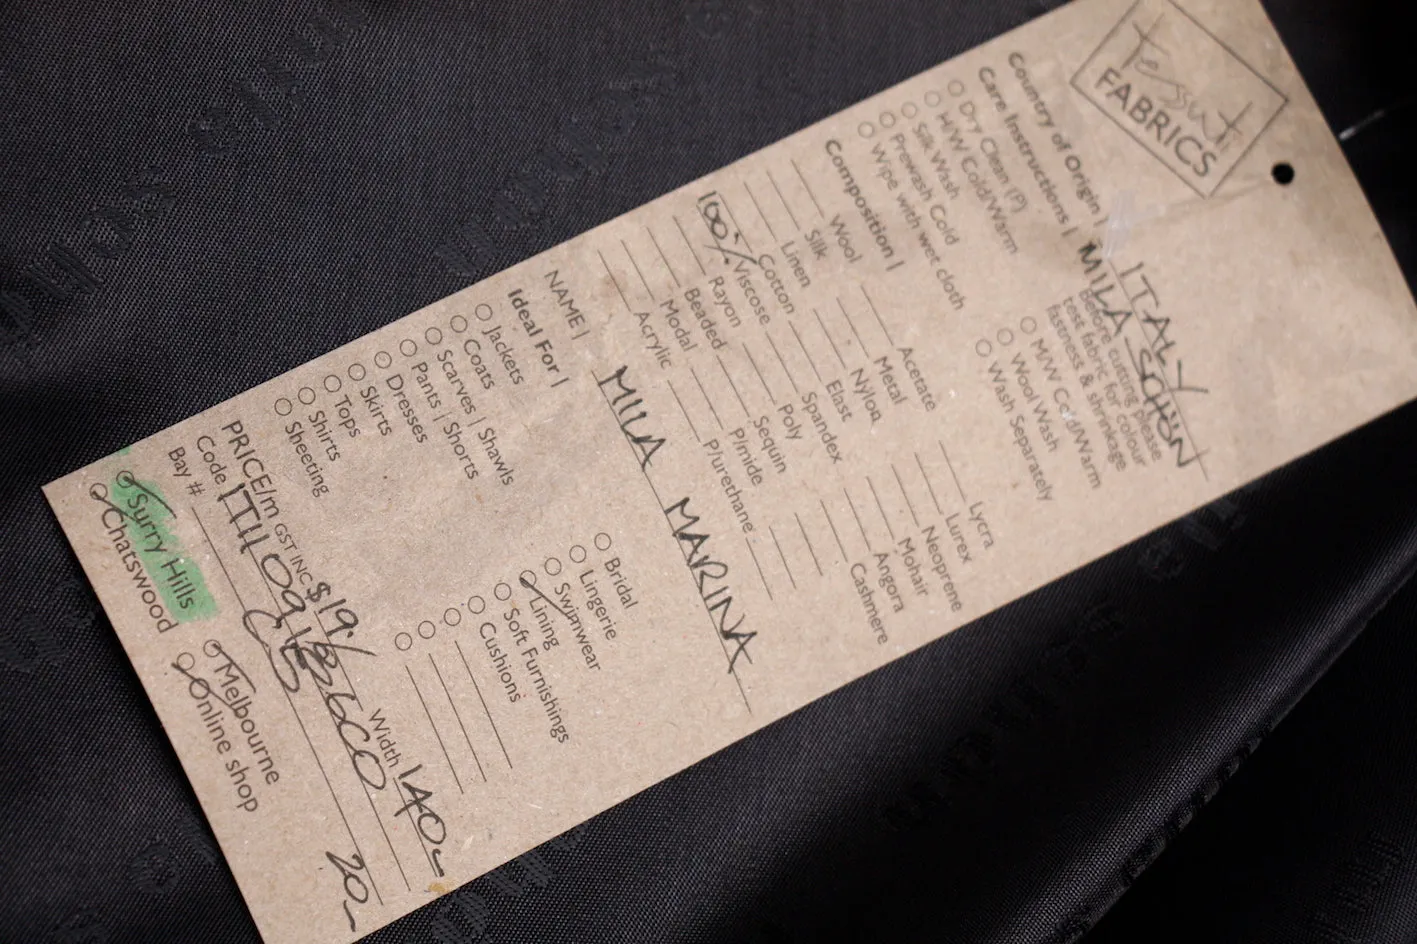 Tessuti
FABRICS
Country of Origin | ITALY
Care Instructions | MILA SCHÖN
Dry Clean (P)
H/W Cold/Warm
Silk Wash
Prewash Cold
Wipe with wet cloth
Before cutting please
test fabric for colour
fastness & shrinkage
M/W Cold/Warm
Wool Wash
Wash Separately
Composition |
Wool
Silk
Linen
Cotton
100% Viscose
Rayon
Beaded
Modal
Acrylic
Acetate
Metal
Nylon
Elast
Spandex
Poly
Sequin
P/mide
P/urethane
Lycra
Lurex
Neoprene
Mohair
Angora
Cashmere
NAME | MILA MARINA
Ideal For |
Jackets
Coats
Scarves | Shawls
Pants | Shorts
Dresses
Skirts
Tops
Shirts
Sheeting
Bridal
Lingerie
Swimwear
Lining
Soft Furnishings
Cushions
PRICE/m GST INC $19./ Width 140
Code
Bay # 20
Surry Hills Melbourne
Chatswood Online shop